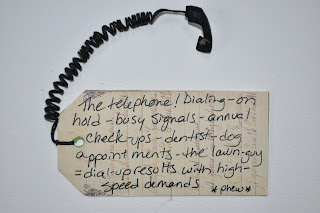 The telephone! Dialing - on
hold - busy signals - annual
check-ups - dentist - dog
appointments - the lawn-guy
= dial-up results with high-
speed demands *phew*